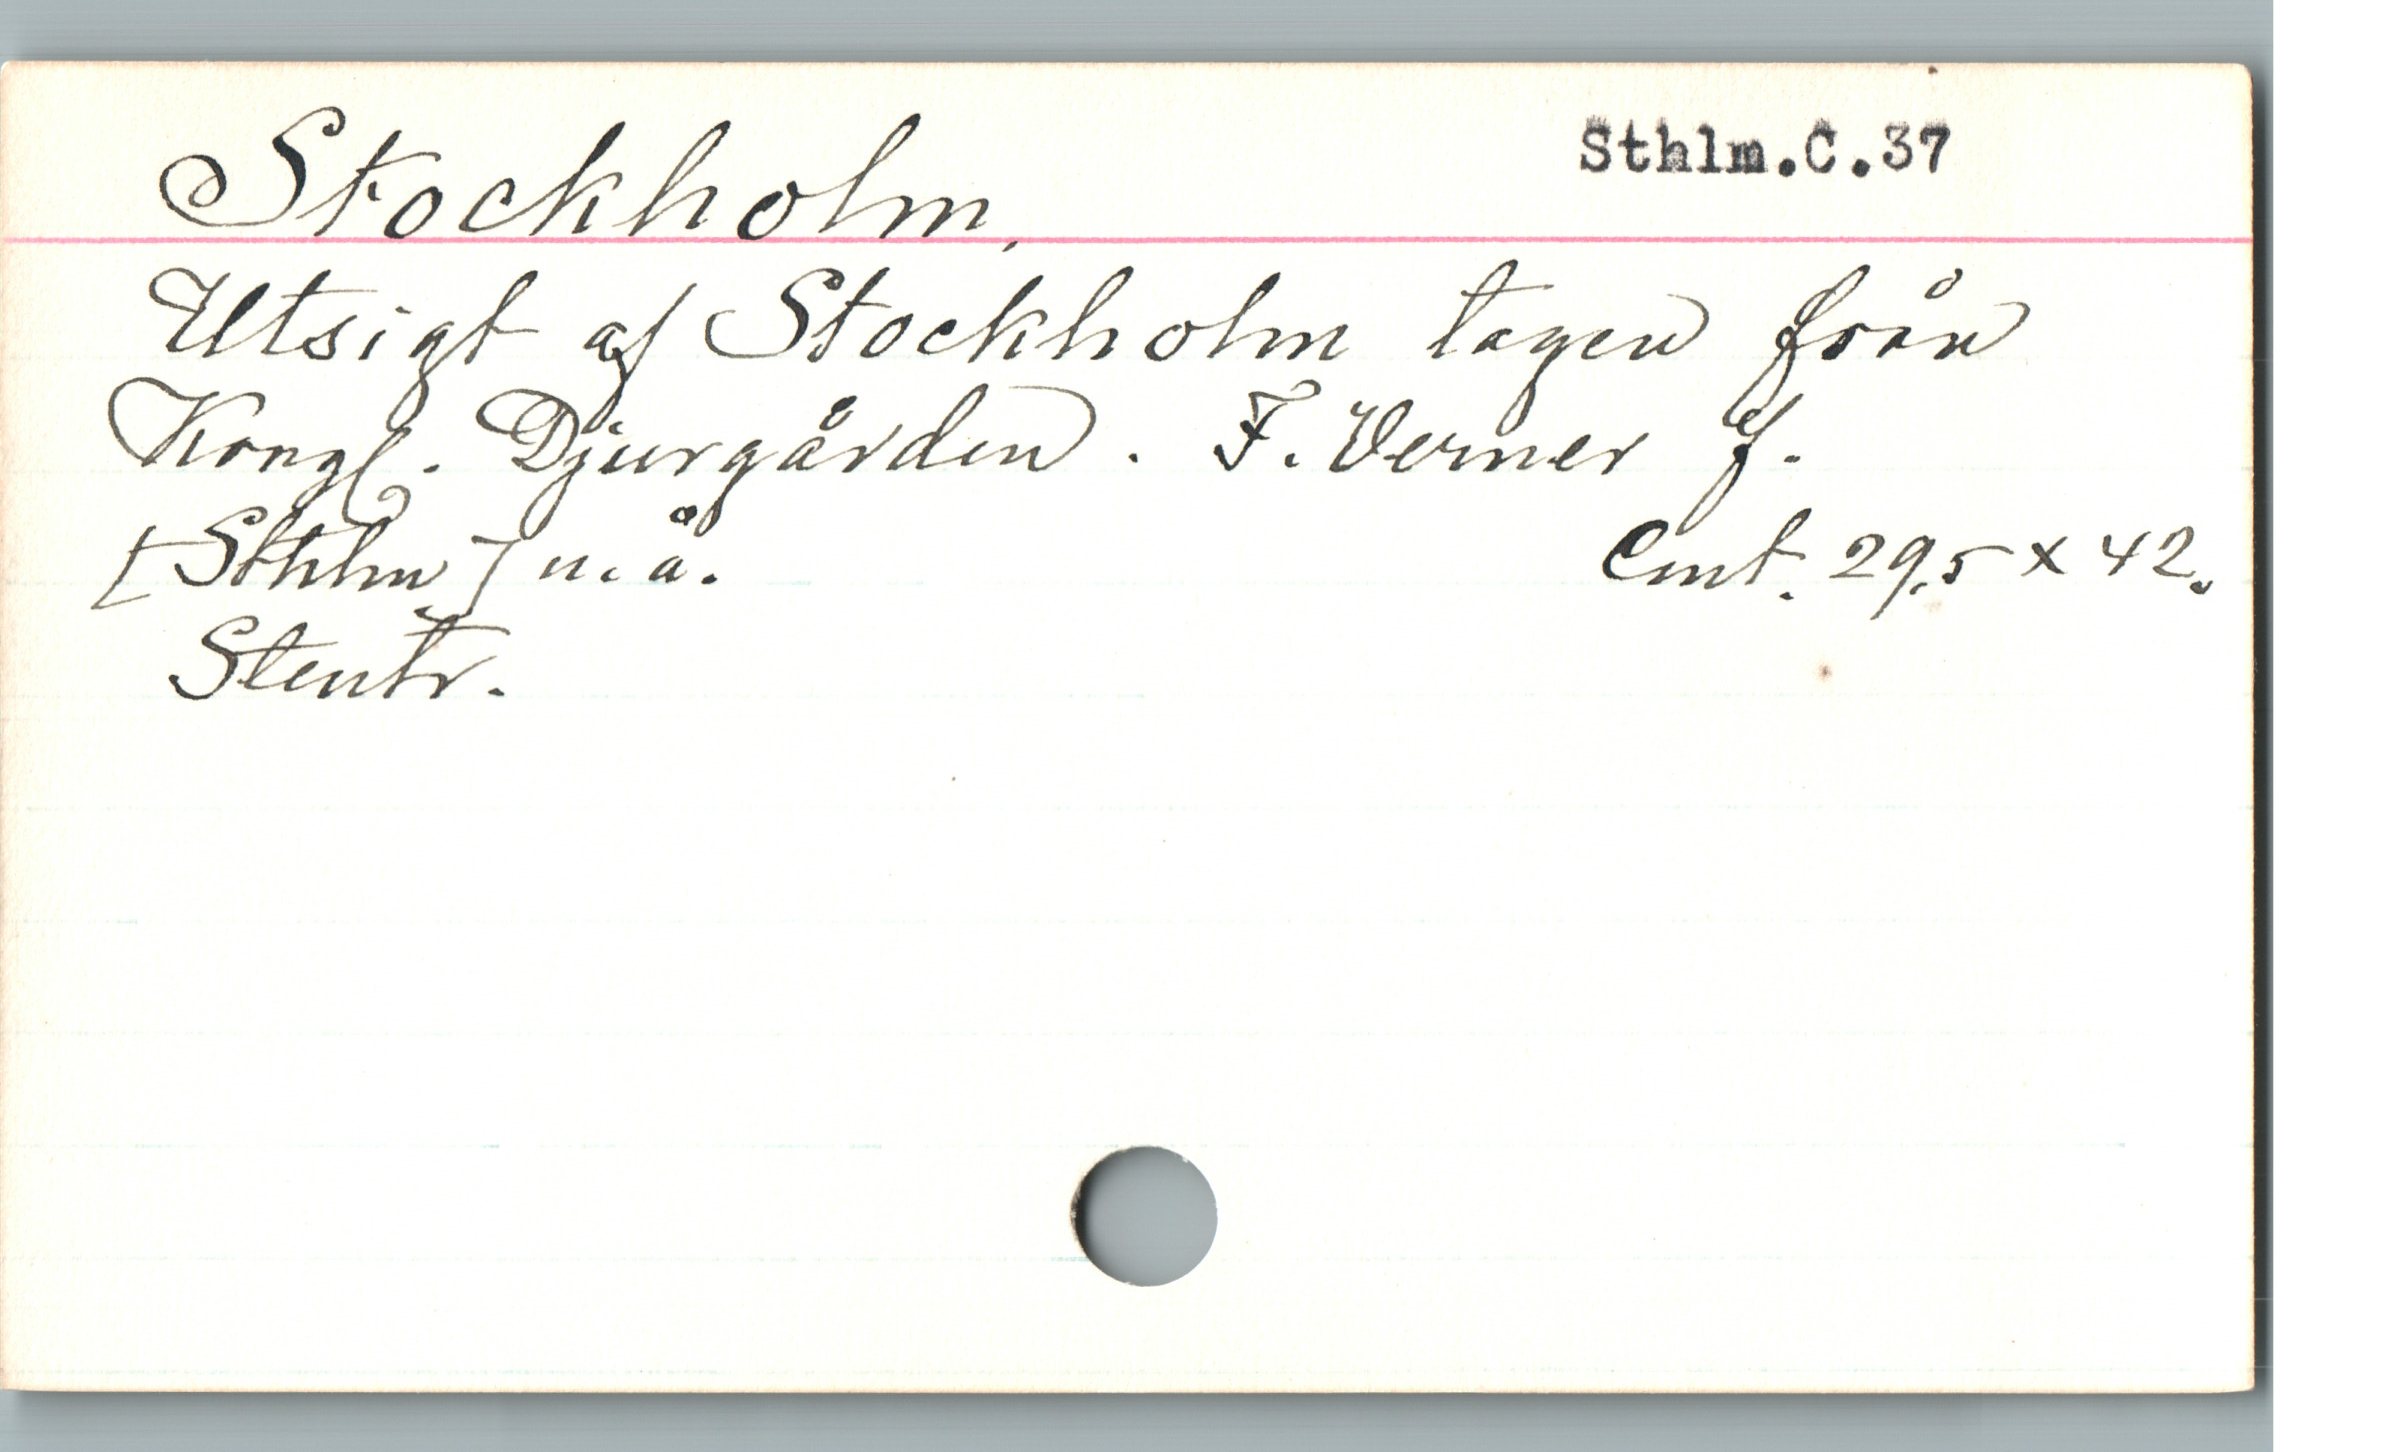 Stockholm. Sthlm.C.37
Utsigt af Stockholm tagen från
Kongl. Djurgården. F. Verner f.
[Sthlm] u. å. Cmt. 29,5 x 42.
Stentr.